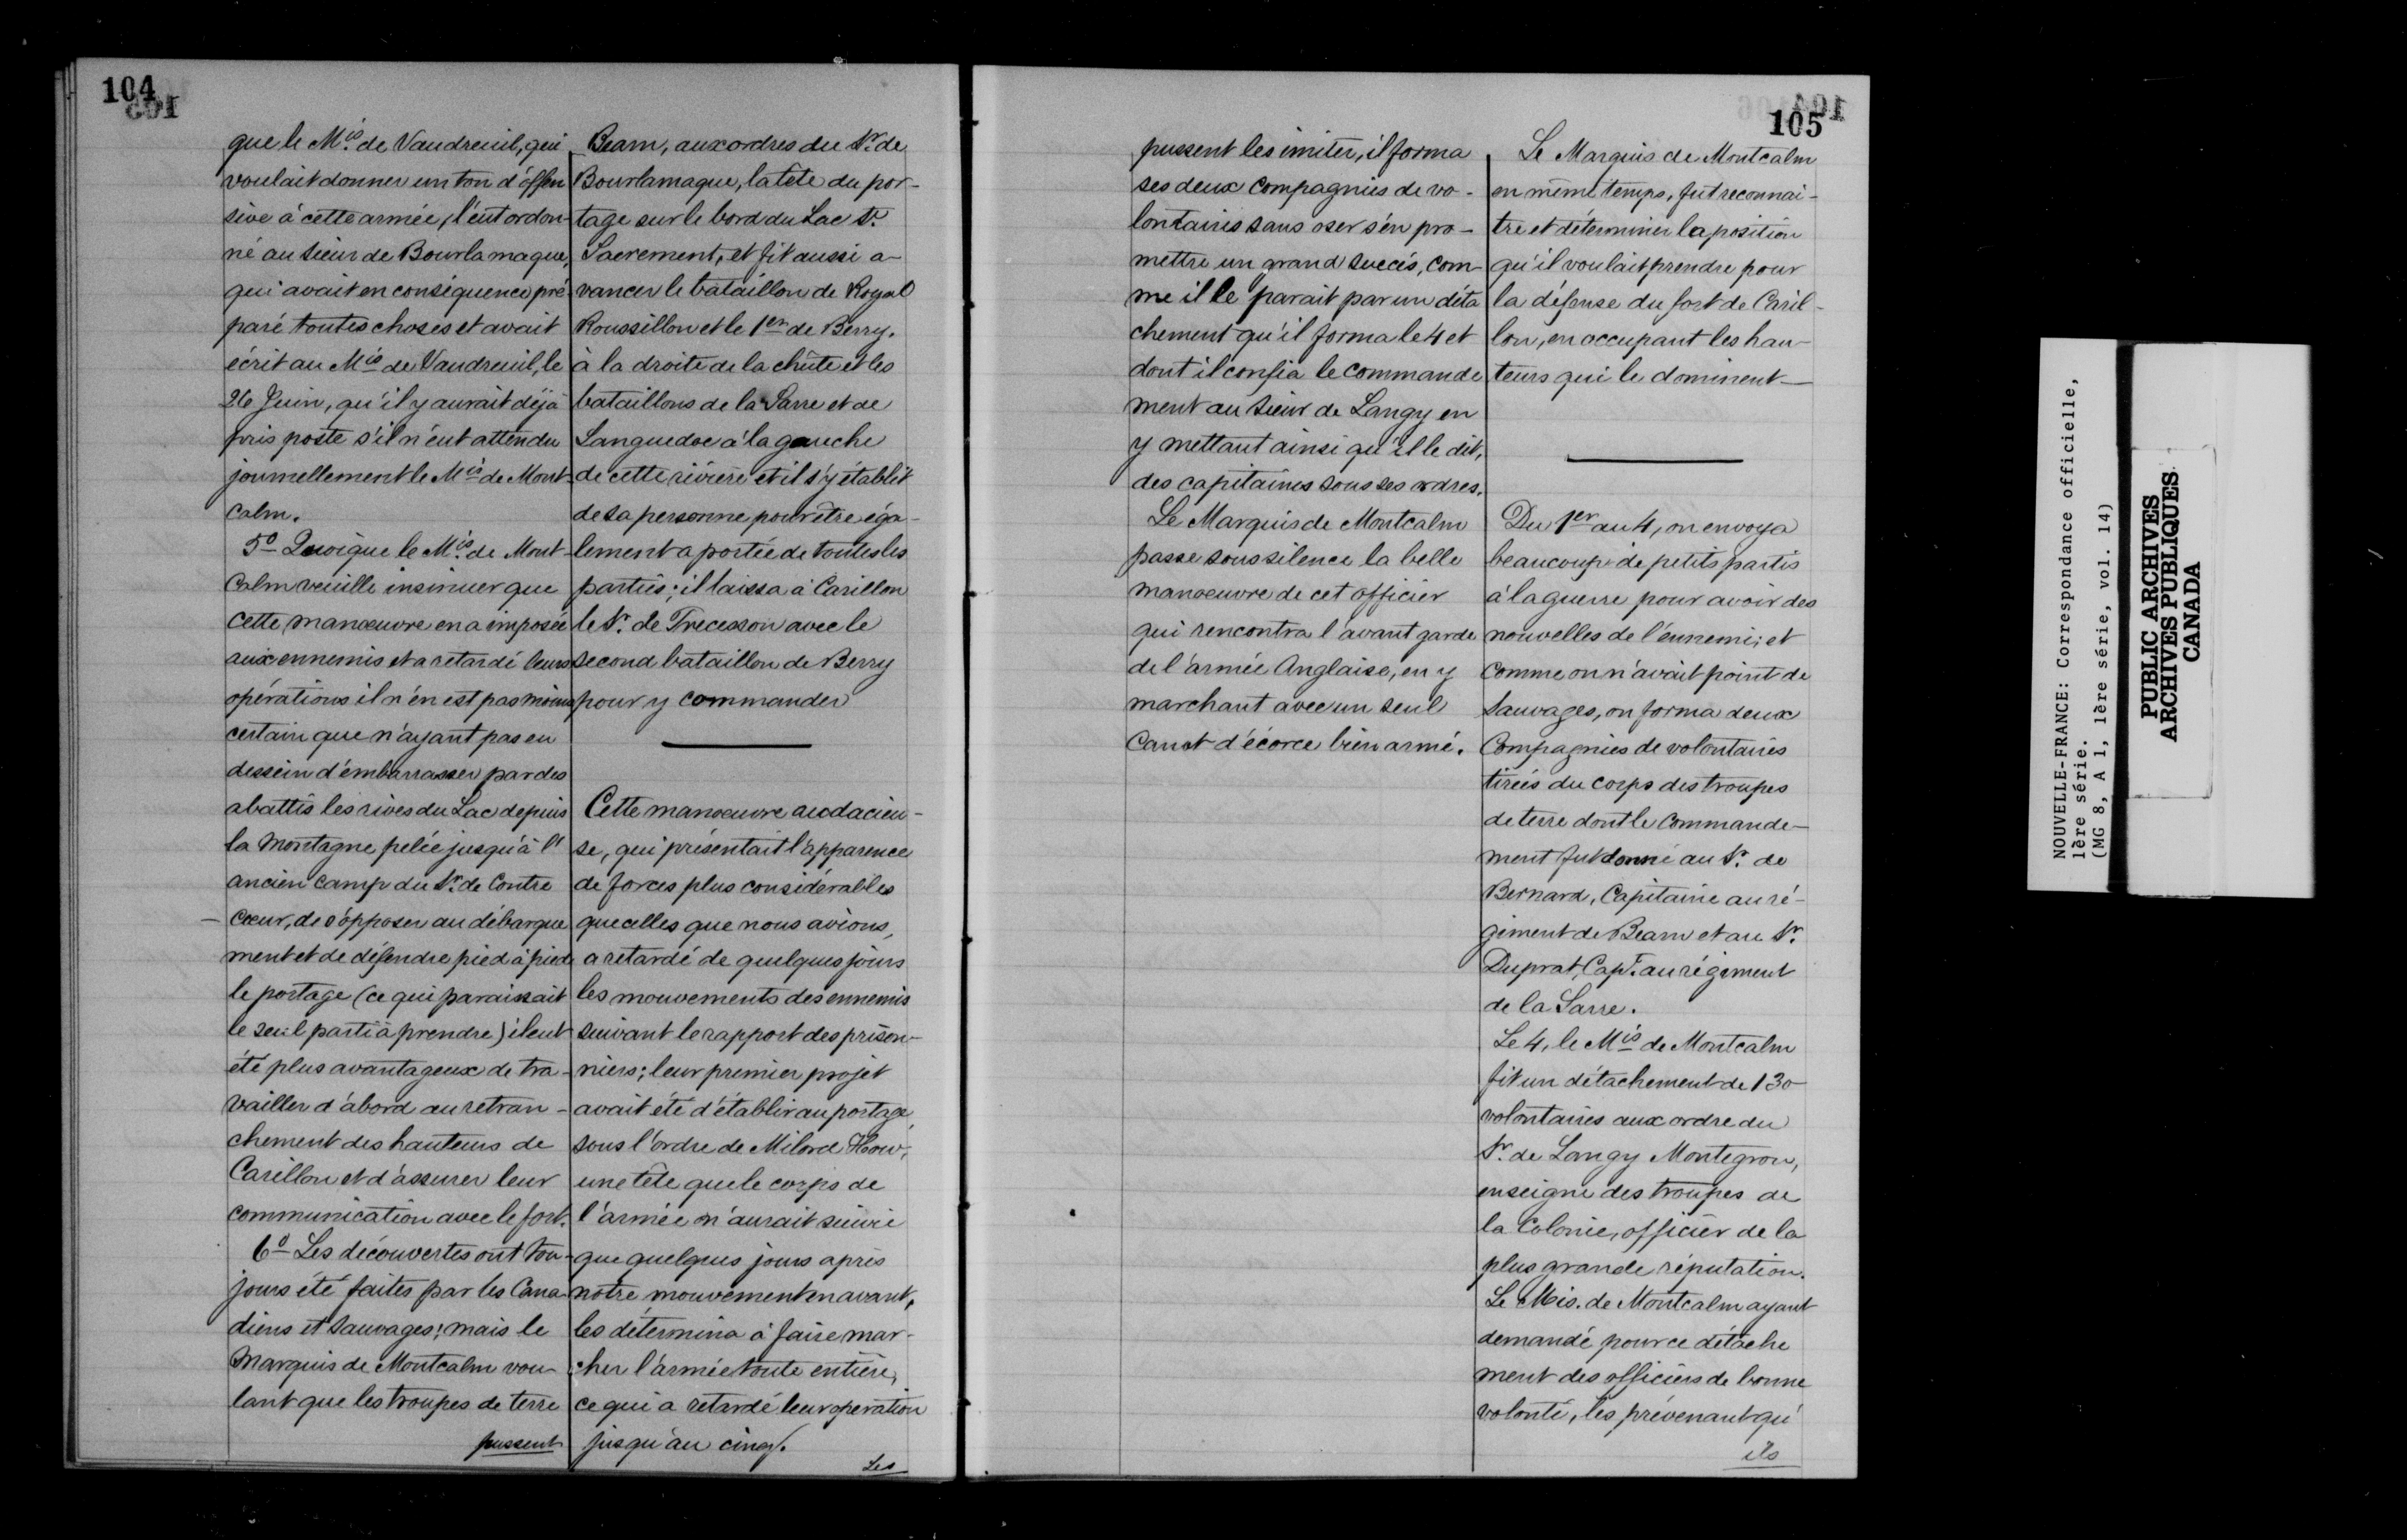 104
que le Mis de Vaudreuil, qui
voulait donner un ton d'offen
sive à cette armée, l'eut ordon-
né au sieur de Bourlamaque,
qui avait en conséquence pré
paré toutes choses et avait
écrit au Mis de Vaudreuil, le
26 Juin, qu'il y aurait déjà
pris poste s'il n'eut attendu
journellement le Mis de Mont-
calm.
5o Quoique le Mis de Mont-
Calm veuille insinuer que
cette manoeuvre en a imposée
aux ennemis et a retardé leurs
opérations il n'en est pas moins
certain que n'ayant pas eu
dessein d'embarrasser par des
abattis les rives du Lac depuis
la Montagne pelée jusqu'à l'
ancien camp du Sr. de Contre
- Cœur, de s'opposer au débarque
ment et de défendre pied à pied
le portage (ce qui paraissait
le seul parti à prendre) il eut
été plus avantageux de tra-
vailler d'abord au retran-
chement des hauteurs de
Carillon et d'assurer leur
communication avec le fort.
6o Les découvertes ont tou-
jours été faites par les Cana-
diens et Sauvages; mais le
Marquis de Montcalm vou-
lant que les troupes de terre
pussent
Bearn, aux ordres du Sr. de
Bourlamaque, la tête du por-
tage sur le bord du Lac St.
Sacrement, et fit aussi a-
vancer le bataillon de Royal
Roussillon et le 1er de Berry.
à la droite de la chûte et les
bataillons de la Sarre et de
Languedoc à la gauche
de cette rivière et il s'y établit
de sa personne pour être éga-
lement a portée de toutes les
parties; il laissa à Carillon
le Sr. de Trecesson avec le
second bataillon de Berry
pour y commander
Cette manoeuvre audacieu-
se, qui présentait l'apparence
de forces plus considérables
que celles que nous avions,
a retardé de quelques jours
les mouvements des ennemis
suivant le rapport des prison-
niers; leur premier projet
avait été d'établir au portage,
sous l'ordre de Milord How,
une tête que le corps de
l'armée n'aurait suivie
que quelques jours après
notre mouvement en avant,
les détermina à faire mar-
cher l'armée toute entière,
ce qui a retardé leur opération
jusqu'au cinq.
Les
105
pussent les imiter, il forma
ses deux compagnies de vo-
lontaires sans oser s'en pro-
mettre un grand succès, com-
me il le parait par un déta
chement qu'il forma le 4 et
dont il confia le commande
ment au Sieur de Langy en
y mettant ainsi qu'il le dit,
des capitaines sous ses ordres.
Le Marquis de Montcalm
passe sous silence la belle
manoeuvre de cet officier
qui rencontra l'avant garde
de l'armée Anglaise, en y
marchant avec un seul
Canot d'écorce bien armé.
Le Marquis de Montcalm
en même temps, fut reconnai-
tre et déterminer la position
qu'il voulait prendre pour
la défense du fort de Caril-
lon, en occupant les hau-
teurs qui le dominent—
Du 1er au 4, on envoya
beaucoup de petits partis
à la guerre pour avoir des
nouvelles de l'ennemi; et
comme on n'avait point de
Sauvages, on forma deux
Compagnies de volontaires
tirées du corps des troupes
de terre dont le commande-
ment fut donné au Sr. de
Bernard, Capitaine au ré-
giment de Bearn et au Sr.
Duprat, Capt. au régiment
de la Sarre.
Le 4, le Mis de Montcalm
fit un détachement de 130
volontaires aux ordre du
Sr. de Langy Montegron,
enseigne des troupes de
la Colonie, officier de la
plus grande réputation.
Le Mis. de Montcalm ayant
demandé pour ce détache
ment des officiers de bonne
volonté, les prévenant qu'
ils
NOUVELLE-FRANCE: Correspondance officielle,
1ère série.
(MG 8, A 1, 1ère série, vol. 14)
PUBLIC ARCHIVES
ARCHIVES PUBLIQUES
CANADA